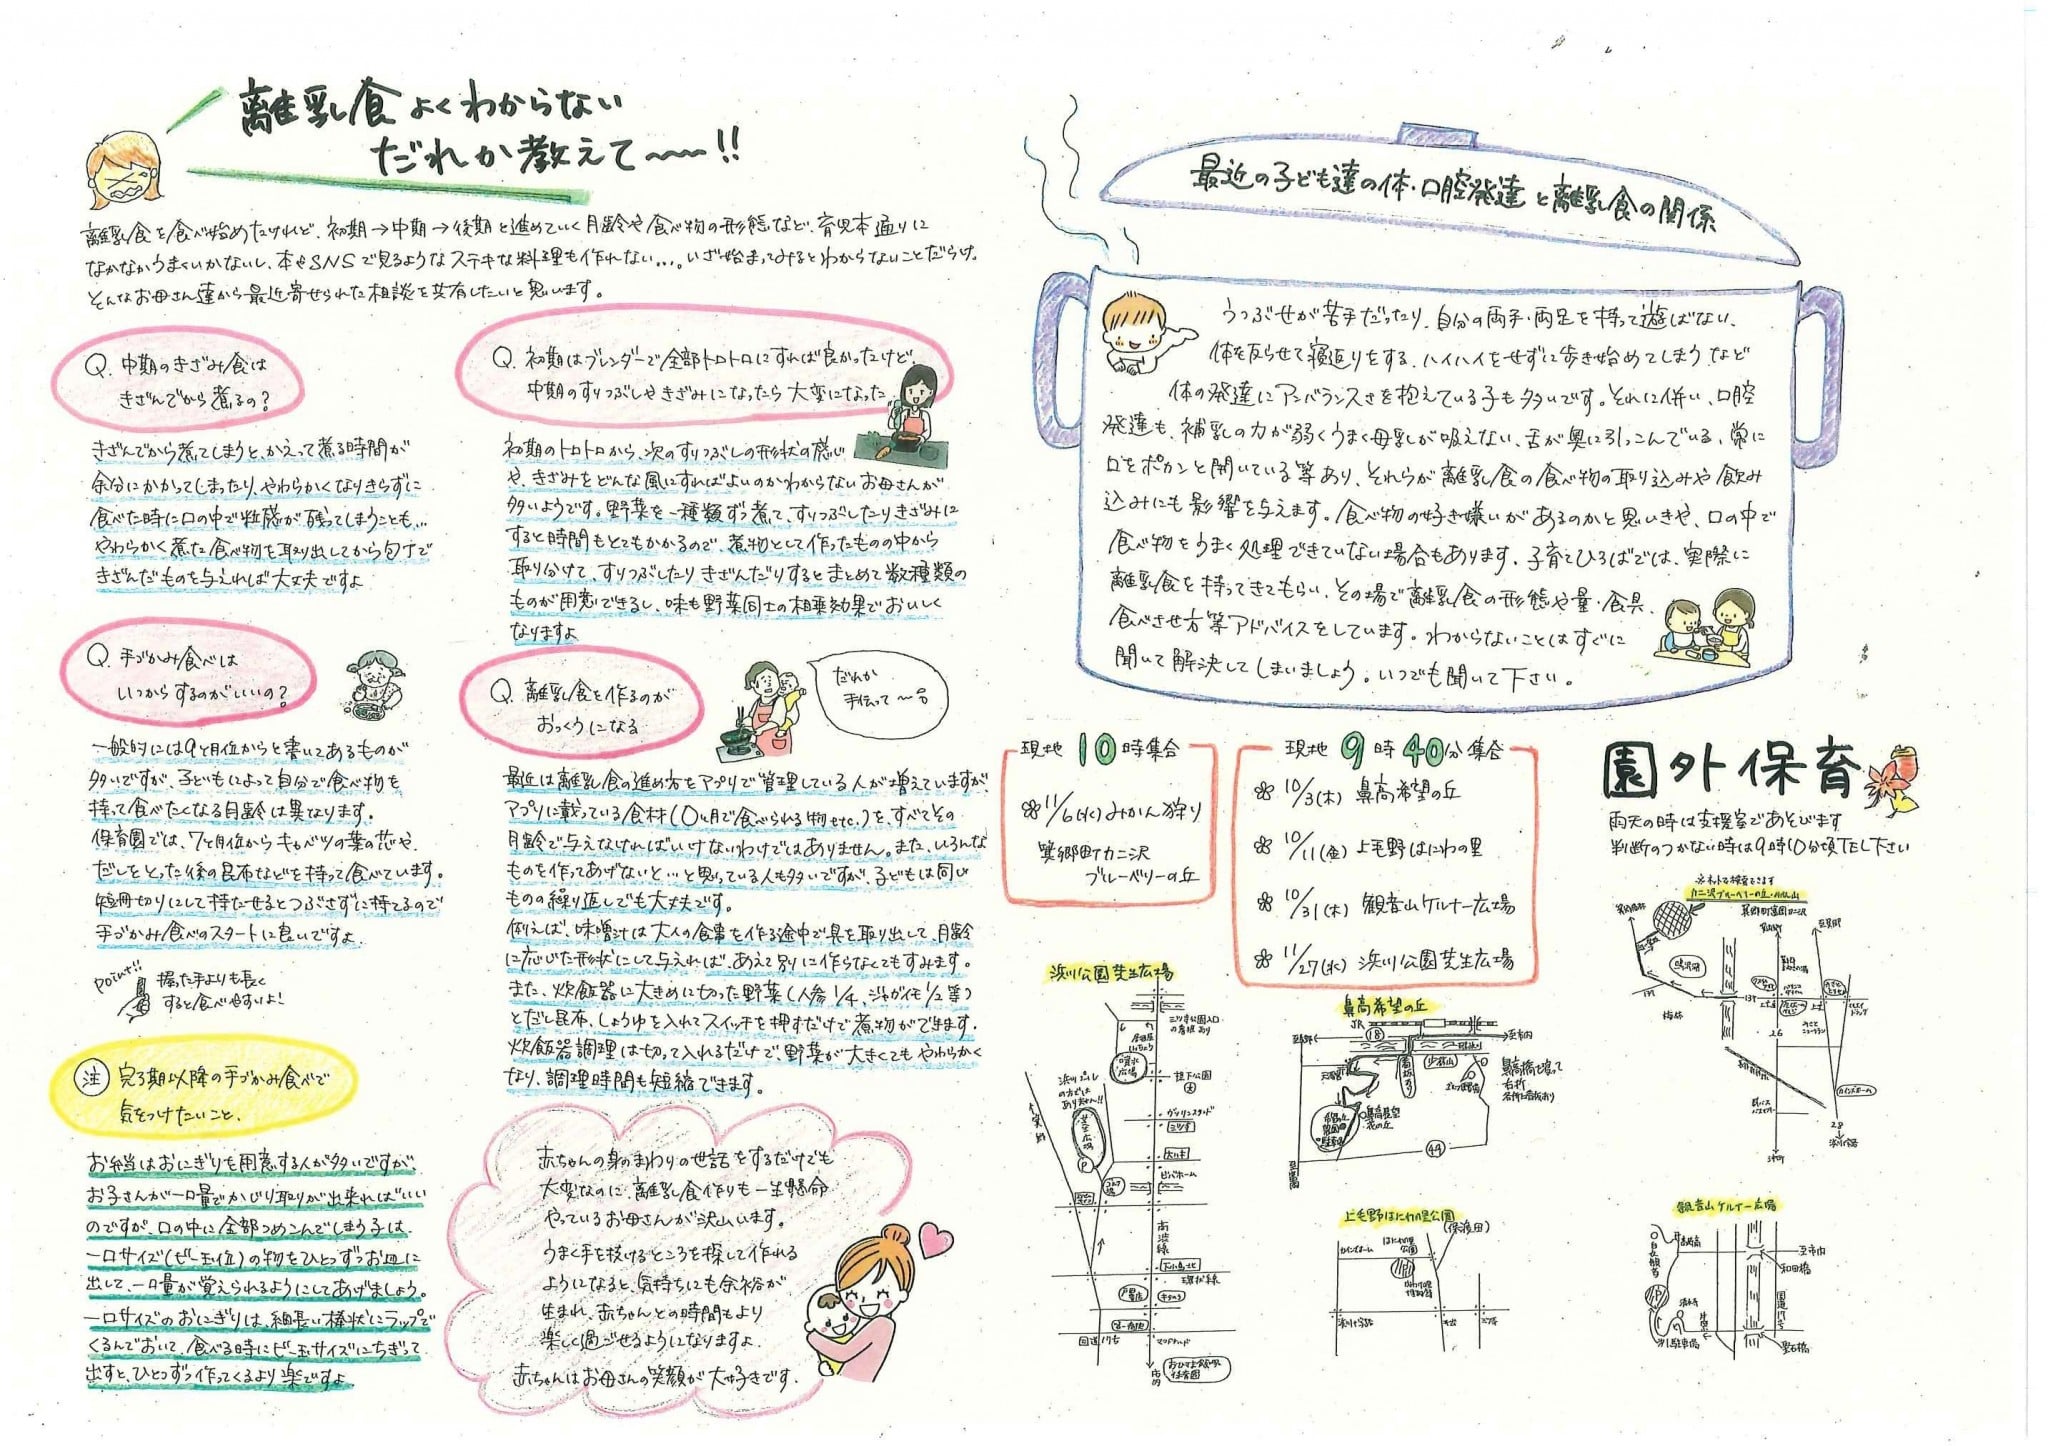 離乳食よくわからない
だれか教えて〜〜!!
離乳食を食べ始めたけれど、初期→中期→後期と進めていく月齢や食べ物の形態など、育児本通りに
なかなかうまくいかないし、本やSNSで見るようなステキな料理も作れない…。いざ始まってみるとわからないことだらけ。
そんなお母さん達から最近寄せられた相談を共有したいと思います。
Q. 中期のきざみ食は
きざんでから煮るの?
きざんでから煮てしまうと、かえって煮る時間が
余分にかかってしまったり、やわらかくなりきらずに
食べた時に口の中で粒感が残ってしまうことも…
やわらかく煮た食べ物を取り出してから包丁で
きざんだものを与えれば大丈夫ですよ
Q. 手づかみ食べは
いつからするのがいいの?
一般的には9ヶ月位からと書いてあるものが
多いですが、子どもによって自分で食べ物を
持って食べたくなる月齢は異なります。
保育園では、7ヶ月位からキャベツの葉の芯や、
だしをとった後の昆布などを持って食べています。
短冊切りにして持たせるとつぶさずに持てるので
手づかみ食べのスタートに良いですよ
point!!
握った手よりも長く
すると食べやすいよ!
注 完了期以降の手づかみ食べで
気をつけたいこと、
お弁当はおにぎりも用意する人が多いですが
お子さんが一口量でかじり取りが出来ればいい
のですが、口の中に全部つめこんでしまう子は、
一口サイズ(ビー玉位)の物をひとつずつお皿に
出して、一口量が覚えられるようにしてあげましょう。
一口サイズのおにぎりは、細長い棒状にラップで
くるんでおいて、食べる時にビー玉サイズにちぎって
出すと、ひとつずつ作ってくるより楽ですよ
Q. 初期はブレンダーで全部トロトロにすれば良かったけど、
中期のすりつぶしやきざみになったら大変になった
初期のトロトロから、次のすりつぶしの形状の感じ
や、きざみをどんな風にすればよいのかわからないお母さんが
多いようです。野菜を一種類ずつ煮て、すりつぶしたりきざみに
すると時間もとてもかかるので、煮物として作ったものの中から
取り分けて、すりつぶしたりきざんだりするとまとめて数種類の
ものが用意できるし、味も野菜同士の相乗効果でおいしく
なりますよ
Q. 離乳食を作るのが
おっくうになる
だれか
手伝って〜
最近は離乳食の進め方をアプリで管理している人が増えていますが、
アプリに載っている食材(○ヶ月で食べられる物etc.)を、すべてその
月齢で与えなければいけないわけではありません。また、いろんな
ものを作ってあげないと…と思っている人も多いですが、子どもは同じ
ものの繰り返しでも大丈夫です。
例えば、味噌汁は大人の食事を作る途中で具を取り出して、月齢
に応じた形状にして与えれば、あえて別に作らなくてもすみます。
また、炊飯器に大きめに切った野菜(人参1/4、ジャガイモ1/2等)
とだし昆布、しょうゆを入れてスイッチを押すだけで煮物ができます。
炊飯器調理は切って入れるだけで、野菜が大きくてもやわらかく
なり、調理時間も短縮できます。
赤ちゃんの身のまわりの世話をするだけでも
大変なのに、離乳食作りも一生懸命
やっているお母さんが沢山います。
うまく手を抜けるところを探して作れる
ようになると、気持ちにも余裕が
生まれ、赤ちゃんとの時間もより
楽しく過ごせるようになりますよ
赤ちゃんはお母さんの笑顔が大好きです。
最近の子ども達の体・口腔発達と離乳食の関係
うつぶせが苦手だったり、自分の両手・両足を持って遊ばない、
体を反らせて寝返りをする、ハイハイをせずに歩き始めてしまうなど
体の発達にアンバランスさを抱えている子も多いです。それに併い、口腔
発達も、補乳の力が弱くうまく母乳が吸えない、舌が奥に引っこんでいる、常に
口をポカンと開いている等あり、それらが離乳食の食べ物の取り込みや飲み
込みにも影響を与えます。食べ物の好き嫌いがあるのかと思いきや、口の中で
食べ物をうまく処理できていない場合もあります。子育てひろばでは、実際に
離乳食を持ってきてもらい、その場で離乳食の形態や量・食具、
食べさせ方等アドバイスをしています。わからないことはすぐに
聞いて解決してしまいましょう。いつでも聞いて下さい。
現地10時集合
11/6(水)みかん狩り
箕郷町カニ沢
ブルーベリーの丘
現地9時40分集合
10/3(木) 鼻高希望の丘
10/11(金) 上毛野はにわの里
10/31(木) 観音山ケルナー広場
11/27(水) 浜川公園芝生広場
園外保育
雨天の時は支援室であそびます
判断のつかない時は9時10分頃TEL下さい
※ネットで検索できます
浜川公園芝生広場
三ツ寺公園入口
の看板あり
噴水広場
浜川プール
の方では
ありません!!
芝生広場
P
ガソリンスタンド
ビバホーム
南渋線
環状線
国道17号
マクドナルド
鼻高希望の丘
JR
18
至市内
少林山
鼻高橋を渡って
右折
看板あり
44
上毛野はにわの里公園
(保渡田)
カインズホーム
はにわの里
公園
観音山ケルナー広場
至市内
和田橋
P
駐車場
聖石橋